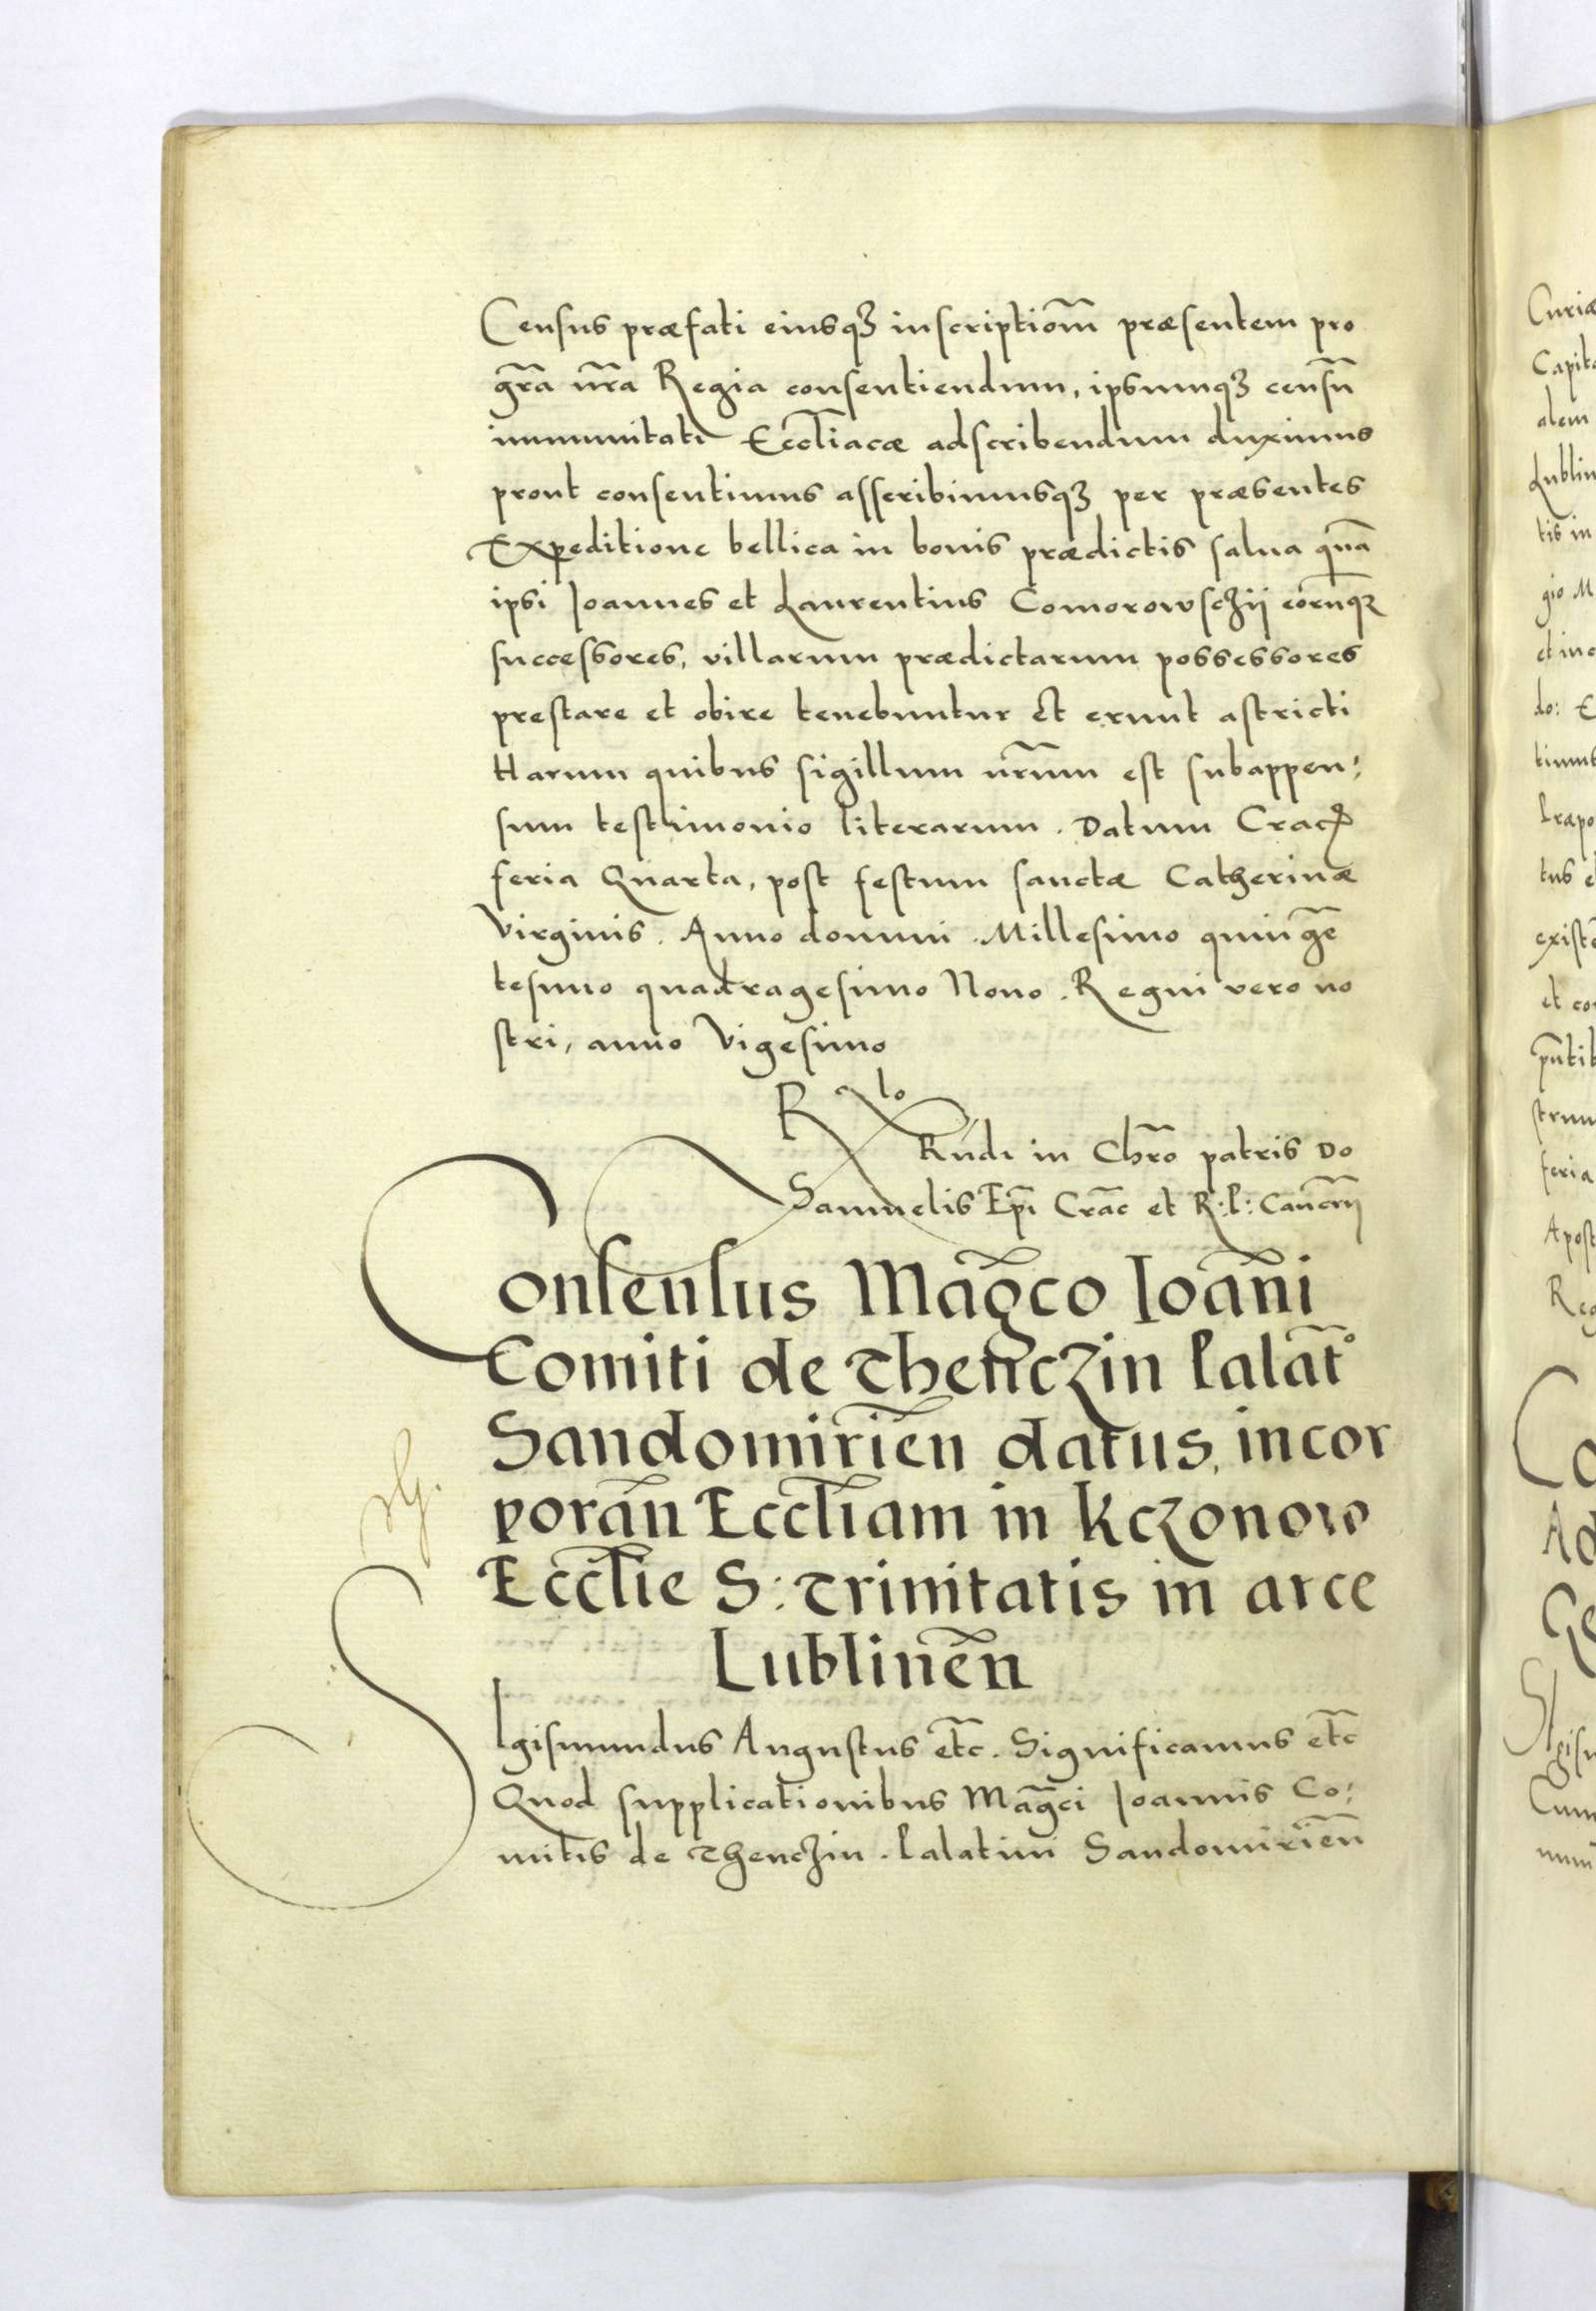 Census præfati eiusqꝫ inscriptiom̃ præsentem pro
gr̃a nr̃a Regia consentiendum, ipsumqꝫ censũ
immunitati Eccl̃iacæ adscribendum duximus
prout consentimus asscribimusqꝫ per præsentes
Expeditione bellica in bonis prædictis salua quã
ipsi Joannes et Laurentius Comorowsczii eorũqꝫ
successores, villarum prædictarum possessores
prestare et obire tenebuntur Et erunt astricti
Harum quibus sigillum nr̃um est subappen:
sum testimonio literarum. Datum Crac̃
feria Quarta, post festum sanctæ Catherinæ
Virginis. Anno domini. Millesimo quingẽ
tesimo quadragesimo Nono. Regni vero no
stri, anno Vigesimo
R lo
Rndi in Chr̃o patris Do
Samuelis Ep̃i Crac̃ et R: P: Cancr̃ij
Consensus Mag̃co Ioañi
Comiti de Thenczin Palat̃o
Sandomirieñ datus, incor
porañ Eccl̃iam in Kczonow
Eccl̃ie S: Trinitatis in arce
Lublineñ
SIgismundus Augustus etc̃. Significamus etc̃
Quod supplicationibus Mag̃ci Joannis Co:
mitis de Thenczin. Palatini Sandomirieñ
Curiæ
Capit
alem
Lublin
tis in
gio M
et inc
do: E
timus
Præpo
tus e
existe
et co
strum
feria
Apost
Reg
Co
Ad
Ge
SIgis
Cum
num